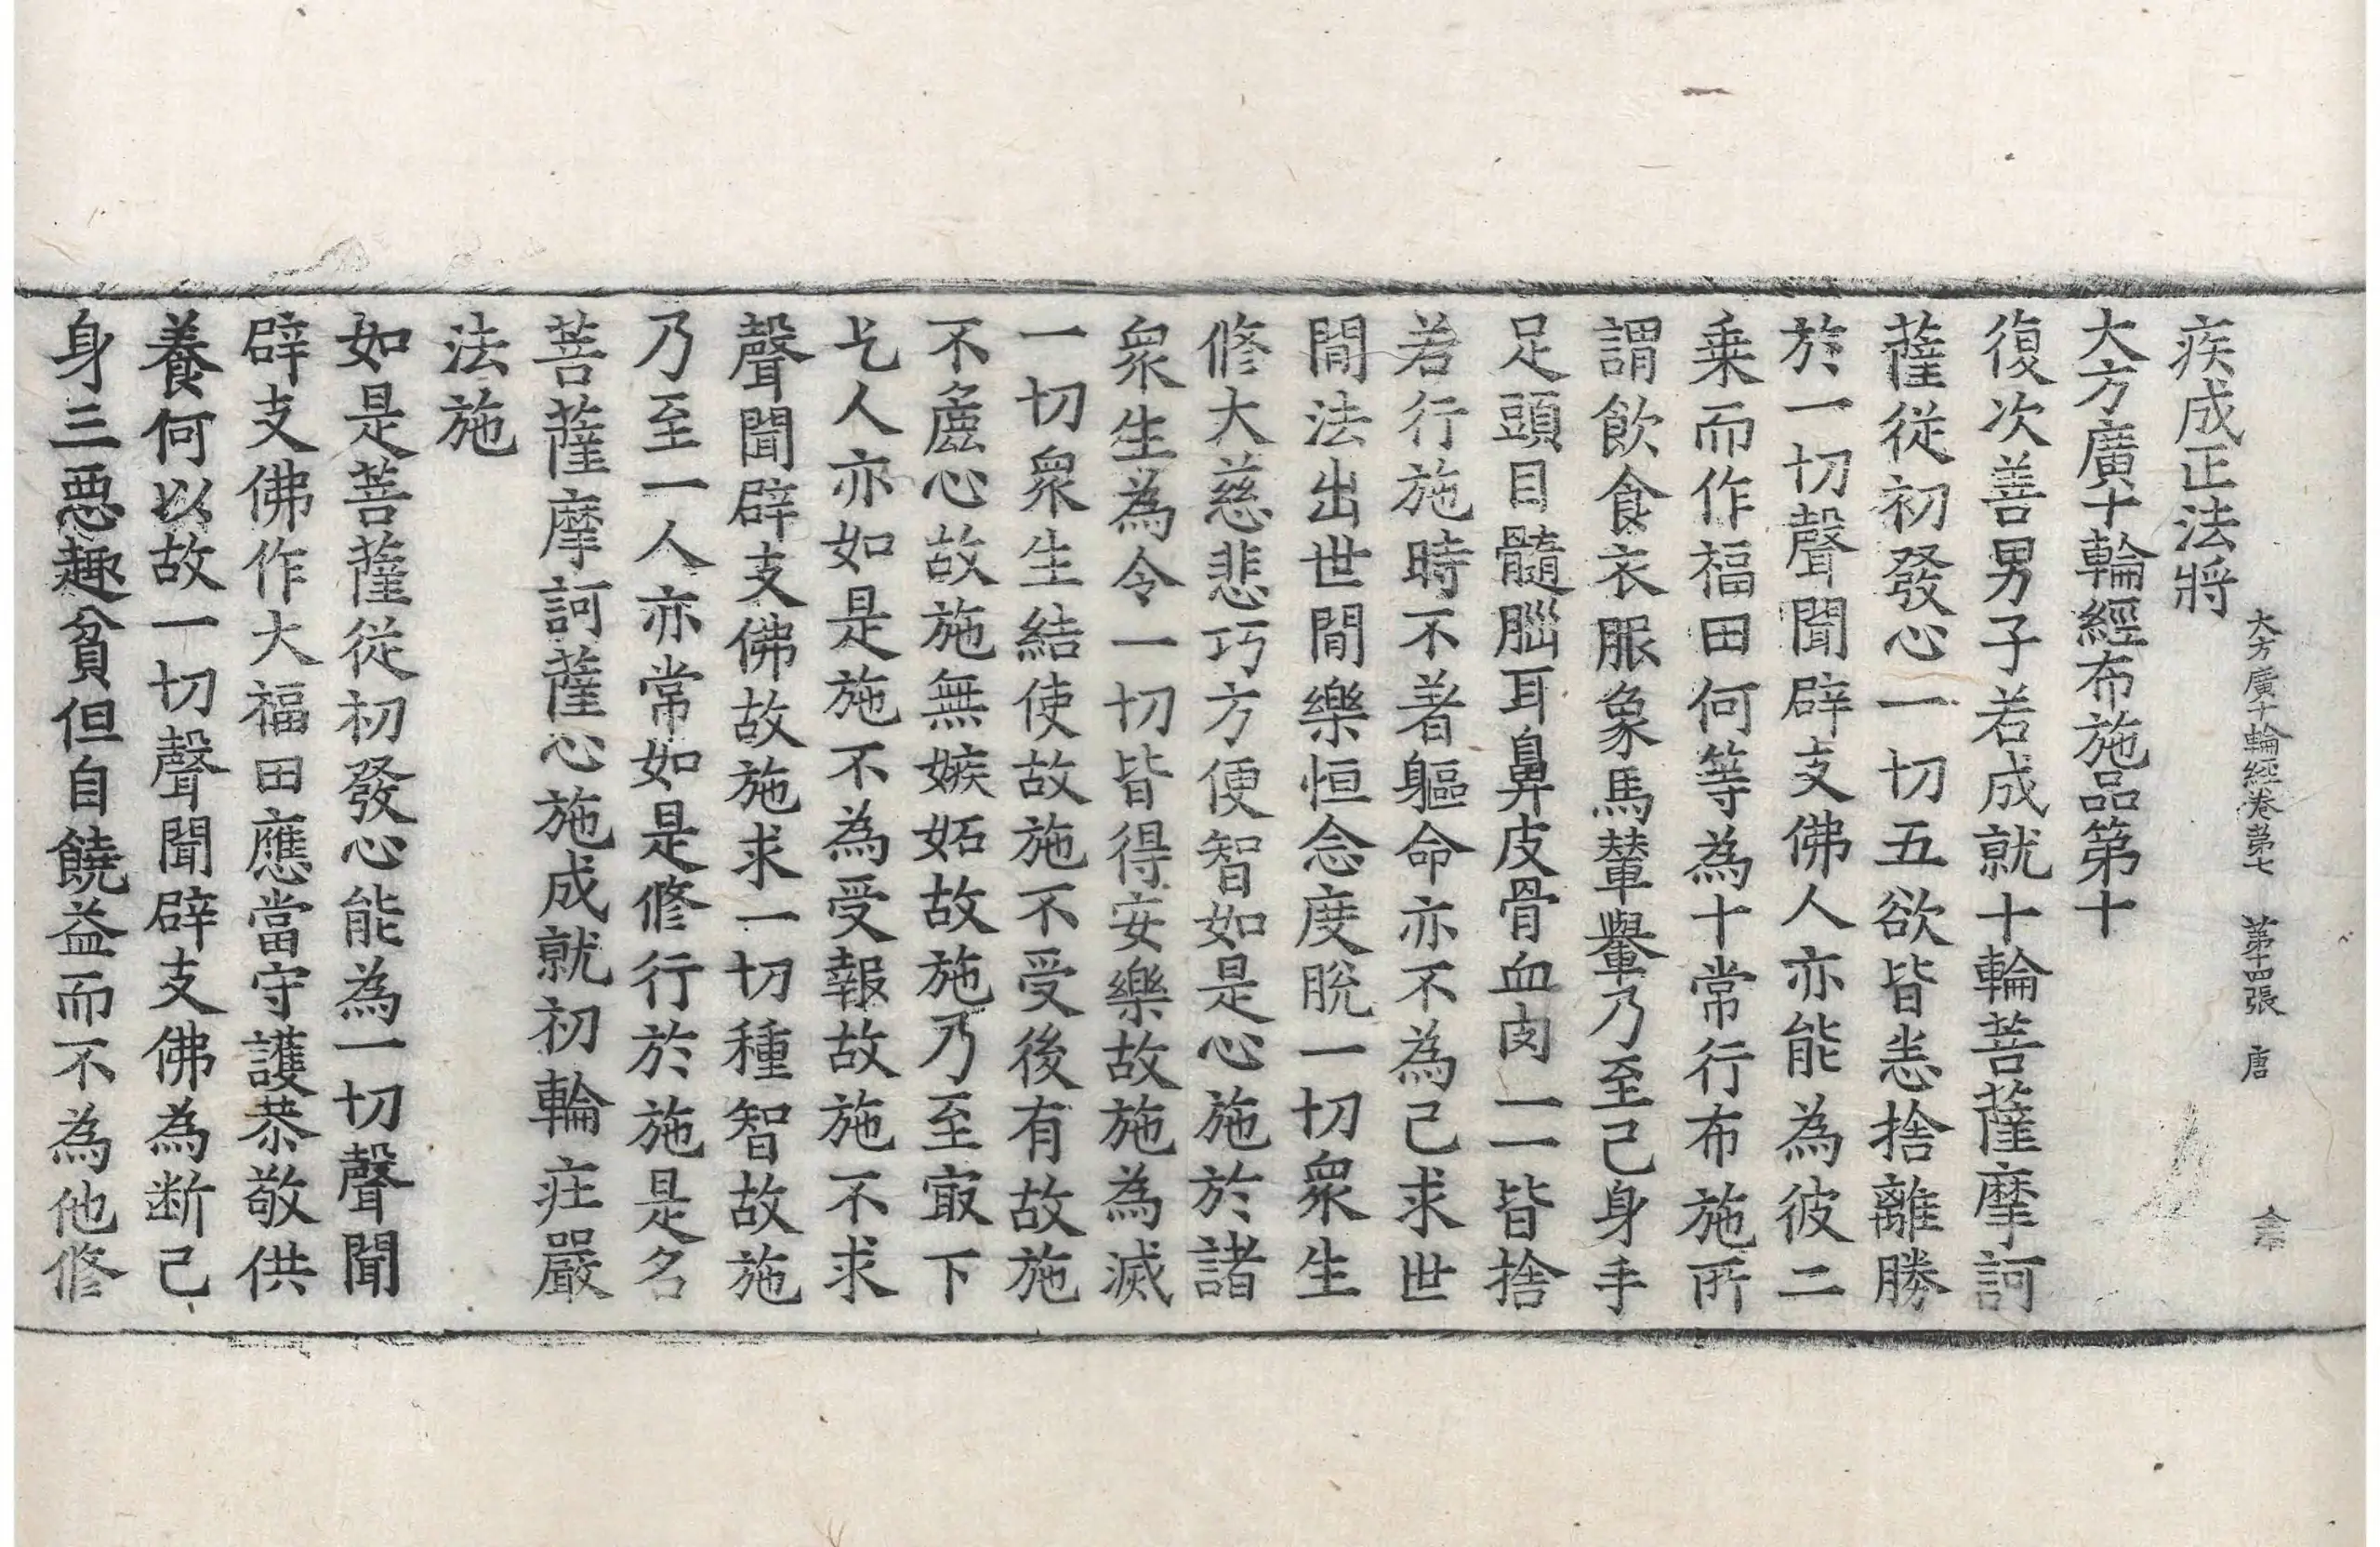 大方廣十輪經卷第七　第十四張　唐
疾成正法將
大方廣十輪經布施品第十
復次善男子若成就十輪菩薩摩訶
薩從初發心一切五欲皆悉捨離勝
於一切聲聞辟支佛人亦能為彼二
乗而作福田何等為十常行布施所
謂飲食衣服象馬輦轝乃至己身手
足頭目髓腦耳鼻皮骨血肉一一皆捨
若行施時不著軀命亦不為己求世
間法出世間樂恒念度脫一切衆生
修大慈悲巧方便智如是心施於諸
衆生為令一切皆得安樂故施為滅
一切衆生結使故施不受後有故施
不麁心故施無嫉妬故施乃至㝡下
乞人亦如是施不為受報故施不求
聲聞辟支佛故施求一切種智故施
乃至一人亦常如是修行於施是名
菩薩摩訶薩心施成就初輪莊嚴
法施
如是菩薩從初發心能為一切聲聞
辟支佛作大福田應當守護恭敬供
養何以故一切聲聞辟支佛為断己
身三惡趣貧但自饒益而不為他修